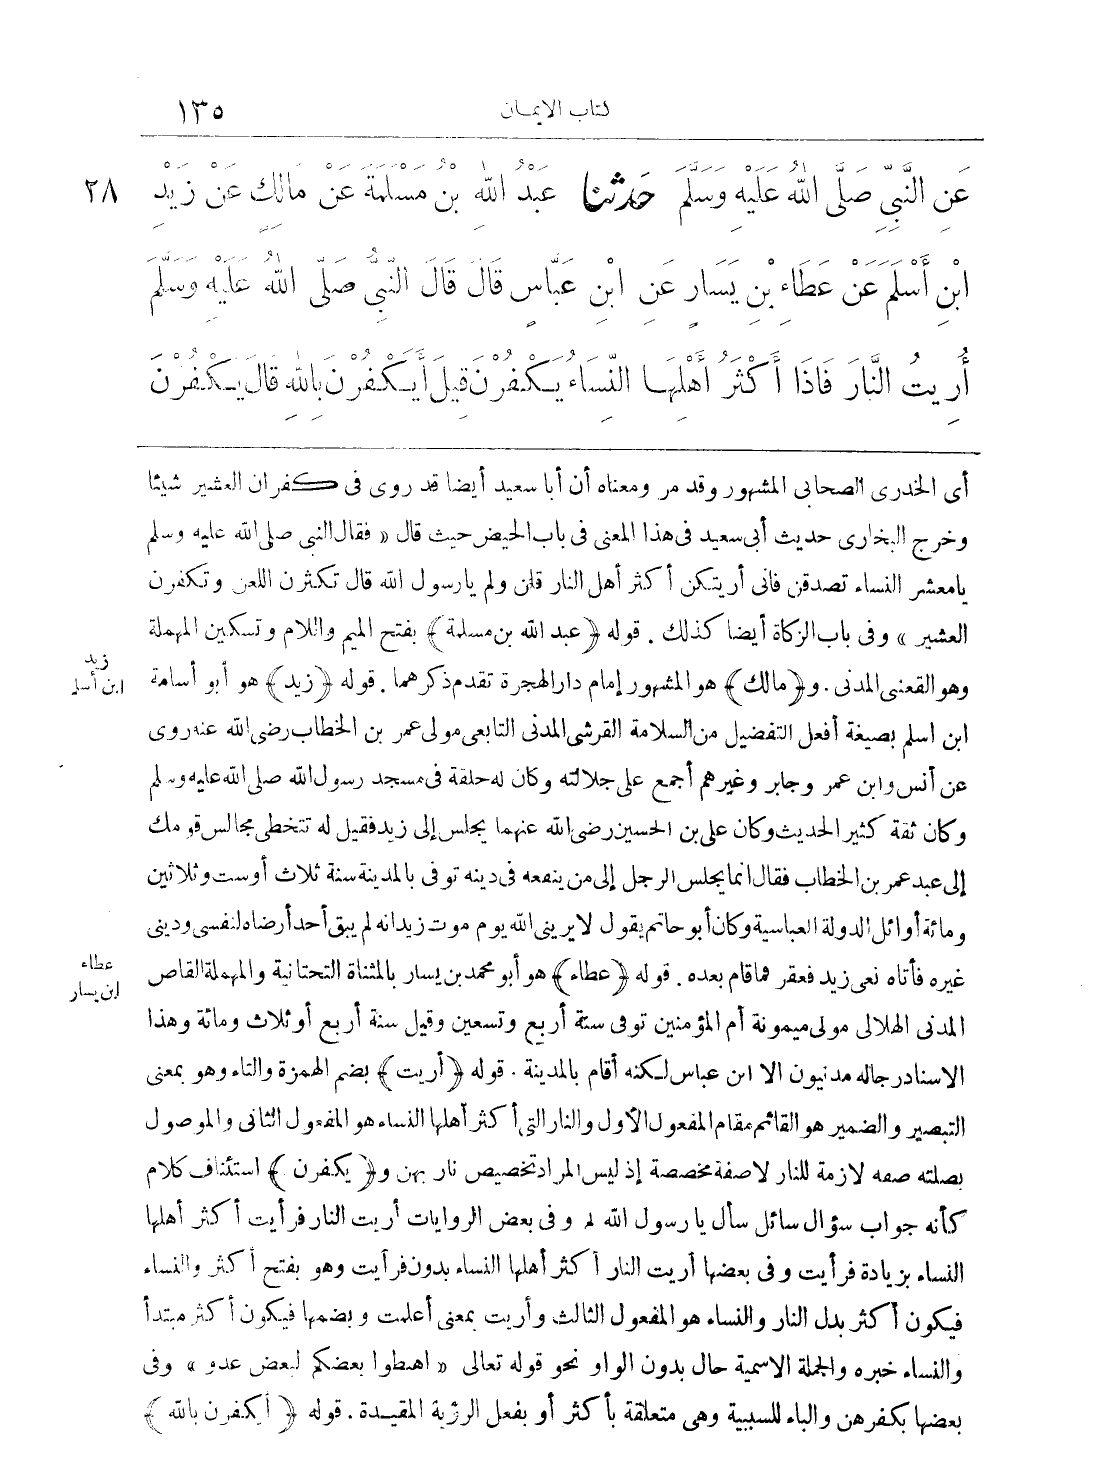 كتاب الايمان ١٣٥
عَنِ النَّبِيِّ صَلَّى اللهُ عَلَيْهِ وَسَلَّمَ حَدثنا عَبْدُ اللهِ بْنُ مَسْلَمَةَ عَنْ مَالِكٍ عَنْ زَيْدِ ٢٨
ابْنِ أَسْلَمَ عَنْ عَطَاءِ بْنِ يَسَارٍ عَنِ ابْنِ عَبَّاسٍ قَالَ قَالَ النَّبِيُّ صَلَّى اللهُ عَلَيْهِ وَسَلَّمَ
أُرِيتُ النَّارَ فَاذَا أَكْثَرُ أَهْلِهَا النِّسَاءُ يَكْفُرْنَ قِيلَ أَيَكْفُرْنَ بِاللهِ قَالَ يَكْفُرْنَ
أى الخدرى الصحابى المشهور وقد مر ومعناه أن أبا سعيد أيضا قد روى فى كفران العشير شيئا
وخرج البخارى حديث أبى سعيد فى هذا المعنى فى باب الحيض حيث قال « فقال النبى صلى الله عليه وسلم
يامعشر النساء تصدقن فانى أريتكن أكثر أهل النار قلن ولم يارسول الله قال تكثرن اللعن وتكفرن
العشير » وفى باب الزكاة أيضا كذلك . قوله ﴿عبد الله بن مسلمة﴾ بفتح الميم واللام وتسكين المهملة
وهو القعنبى المدنى . و﴿مالك﴾ هو المشهور إمام دار الهجرة تقدم ذكرهما . قوله ﴿زيد﴾ هو أبو أسامة
زيد
ابن أسلم
ابن اسلم بصيغة أفعل التفضيل من السلامة القرشى المدنى التابعى مولى عمر بن الخطاب رضى الله عنه روى
عن أنس وابن عمر وجابر وغيرهم أجمع على جلالته وكان له حلقة فى مسجد رسول الله صلى الله عليه وسلم
وكان ثقة كثير الحديث وكان على بن الحسين رضى الله عنهما يجلس إلى زيد فقيل له تتخطى مجالس قومك
إلى عبد عمر بن الخطاب فقال انما يجلس الرجل إلى من ينفعه فى دينه توفى بالمدينة سنة ثلاث أوست وثلاثين
ومائة أوائل الدولة العباسية وكان أبو حاتم يقول لا يرينى الله يوم موت زيد انه لم يبق أحد أرضاه لنفسى ودينى
غيره فأتاه نعى زيد فعقر فما قام بعده . قوله ﴿عطاء﴾ هو أبو محمد بن يسار بالمثناة التحتانية والمهملة القاص
عطاء
ابن يسار
المدنى الهلالى مولى ميمونة أم المؤمنين توفى سنة أربع وتسعين وقيل سنة أربع أو ثلاث ومائة وهذا
الاسناد رجاله مدنيون الا ابن عباس لكنه أقام بالمدينة . قوله ﴿أريت﴾ بضم الهمزة والتاء وهو بمعنى
التبصير والضمير هو القائم مقام المفعول الأول والنار التى أكثر أهلها النساء هو المفعول الثانى والموصول
بصلته صفه لازمة للنار لا صفة مخصصة إذ ليس المراد تخصيص نار بهن و﴿يكفرن﴾ استئناف كلام
كأنه جواب سؤال سائل سأل يا رسول الله لم وفى بعض الروايات أريت النار فرأيت أكثر أهلها
النساء بزيادة فرأيت وفى بعضها أريت النار أكثر أهلها النساء بدون فرأيت وهو بفتح أكثر والنساء
فيكون أكثر بدل النار والنساء هو المفعول الثالث وأريت بمعنى أعلمت وبضمها فيكون أكثر مبتدأ
والنساء خبره والجملة الاسمية حال بدون الواو نحو قوله تعالى « اهبطوا بعضكم لبعض عدو » وفى
بعضها بكفرهن والباء للسببية وهى متعلقة بأكثر أو بفعل الرؤية المقيدة . قوله ﴿أيكفرن بالله﴾